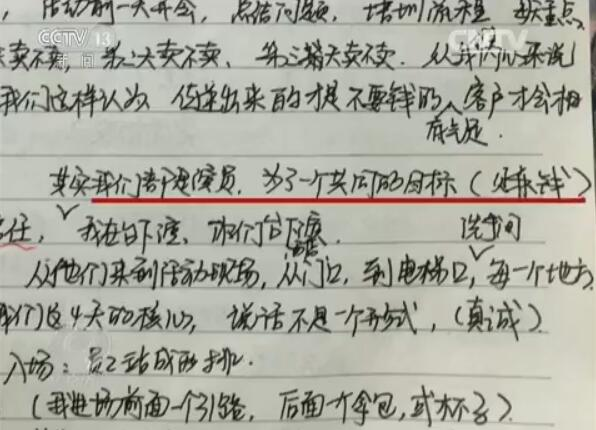 CCTV 13
新闻
CNTV
，活动前一天开会，总结问题，培训流程 每天重点
天卖不卖，第二天卖不卖，第三天卖不卖．从我们内心来说
我们这样认为 传递出来的才是不要钱的，客户才会相
有气足．
其实我们都是演员，为了一个共同的目标（赚钱）
任， 我在台下演，你们台下演． 洗手间
从他们来到活动现场，从门口，到电梯口，每一个地方
我们这4天的核心，说话不是一个形式，（真诚）
入场：员工站成两排．
（我进场前面一个引路，后面一个拿包，或杯子）．